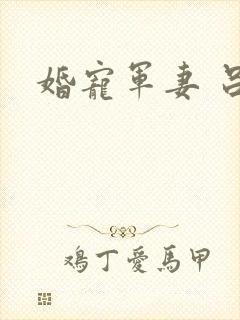 婚寵軍妻 呂
鸡丁愛馬甲